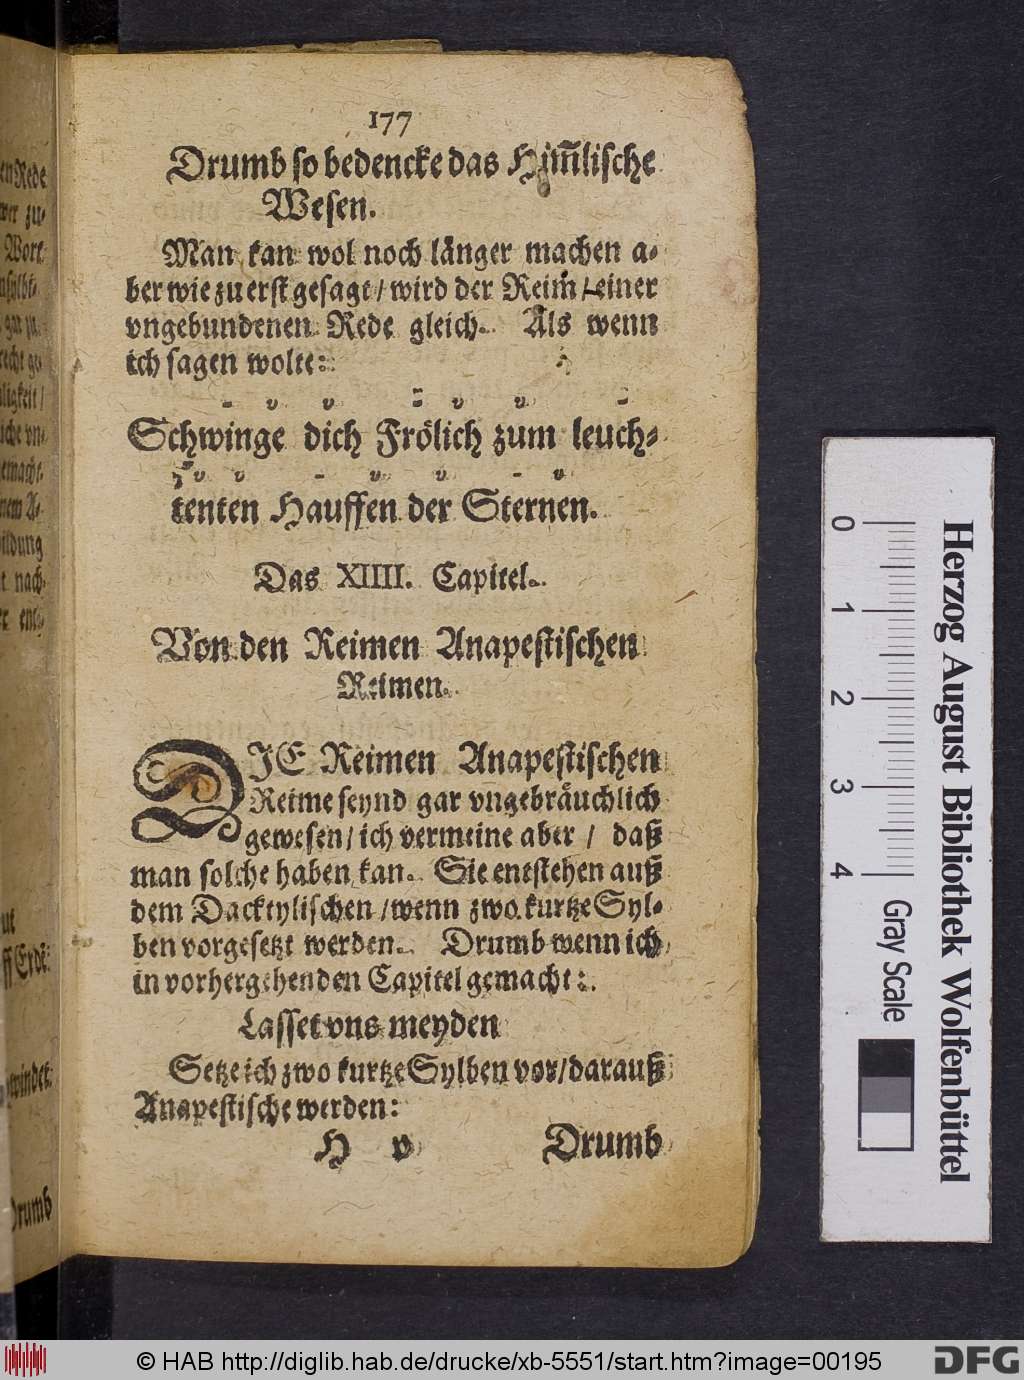 177
Drumb so bedencke das Him̃lische
Wesen.
Man kan wol noch länger machen a-
ber wie zu erst gesagt / wird der Reim / einer
vngebundenen Rede gleich. Als wenn
ich sagen wolte:
- v v - v v -
Schwinge dich Frölich zum leuch-
v v - v v - v
tenten Hauffen der Sternen.
Das XIIII. Capitel.
Von den Reimen Anapestischen
Reimen.
DIE Reimen Anapestischen
Reime seynd gar vngebräuchlich
gewesen / ich vermeine aber / daß
man solche haben kan. Sie entstehen auß
dem Dacktylischen / wenn zwo kurtze Syl-
ben vorgesetzt werden. Drumb wenn ich
in vorhergehenden Capitel gemacht:
Lasset vns meyden
Setze ich zwo kurtze Sylben vor / darauß
Anapestische werden:
H v Drumb
en Rede
wer zu-
Wort
ligkeit /
iche vn-
gemacht.
bildung
t nach-
ff Erdē:
Drumb
0 1 2 3 4
Gray Scale
Herzog August Bibliothek Wolfenbüttel
© HAB http://diglib.hab.de/drucke/xb-5551/start.htm?image=00195
DFG